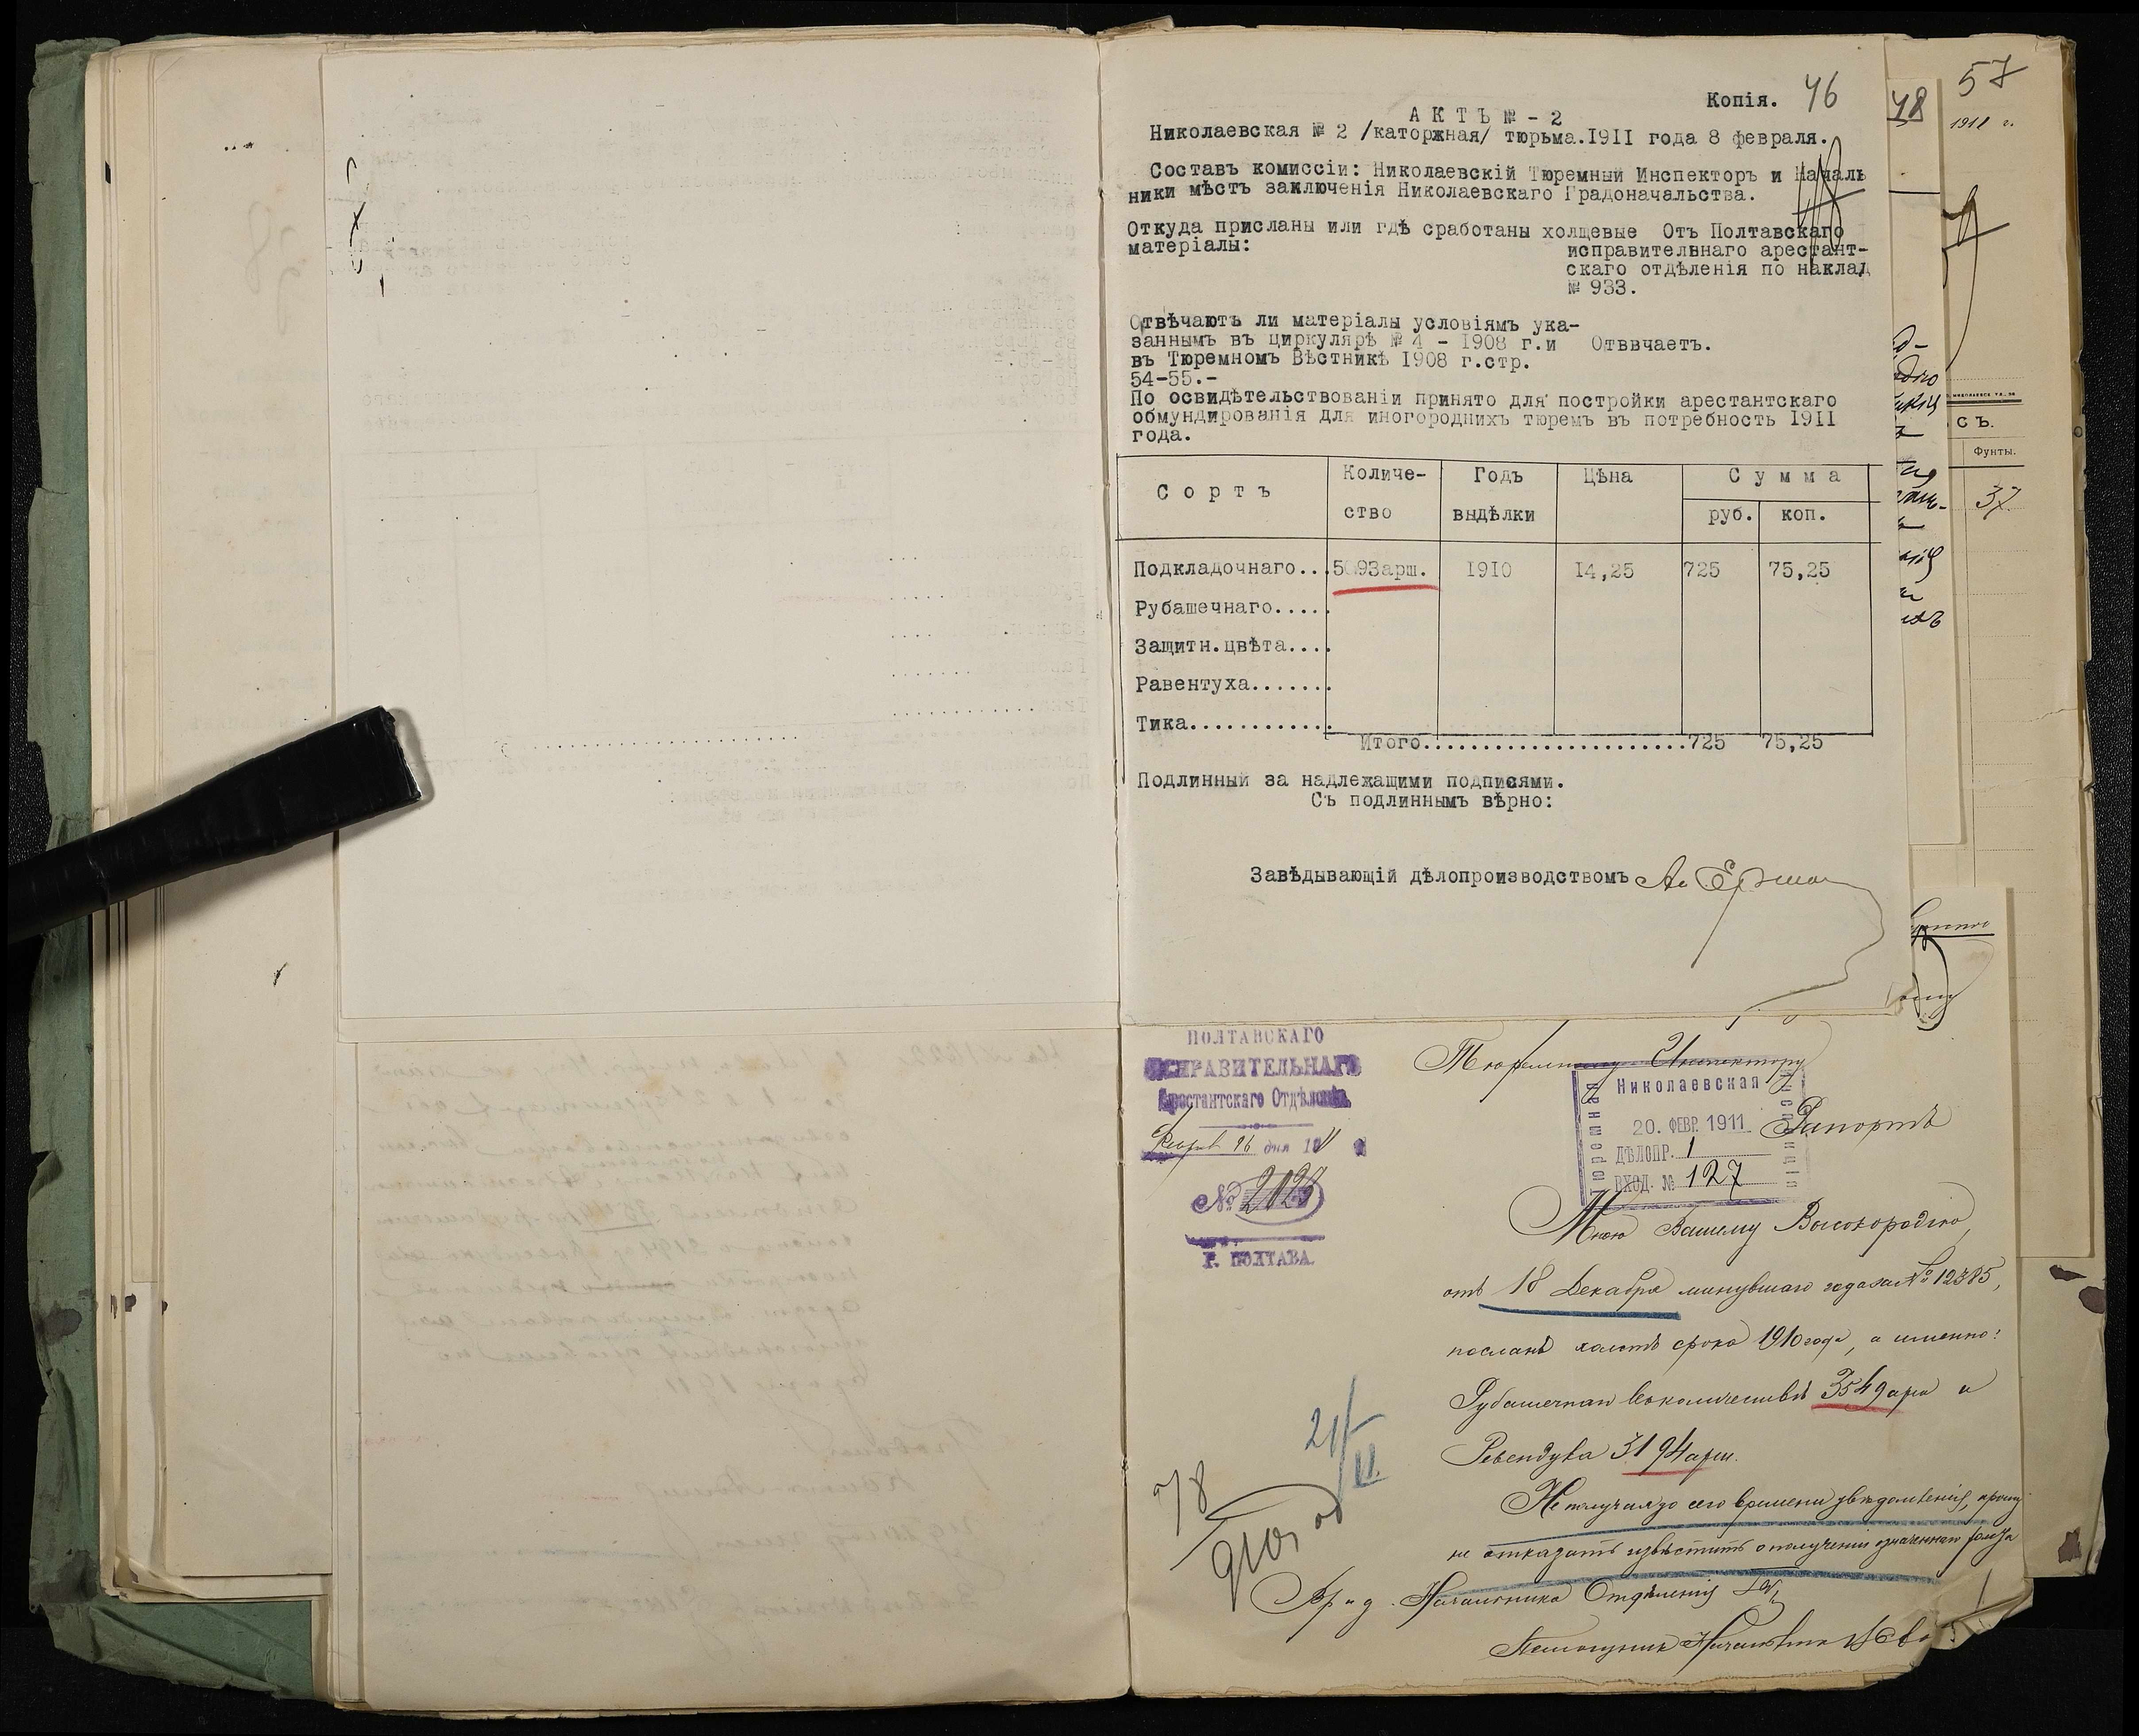 Копія. 46
АКТЪ № - 2
Николаевская № 2 /каторжная/ тюрьма.1911 года 8 февраля.
Составъ комиссіи: Николаевскій Тюремный Инспекторъ и Началь
ники мѣстъ заключенія Николаевскаго Градоначальства.
Откуда присланы или гдѣ сработаны холщевые Отъ Полтавскаго
матеріалы: исправительнаго арестант-
скаго отдѣленія по наклад
№ 933.
Отвѣчаютъ ли матеріалы условіямъ ука-
заннымъ въ циркулярѣ № 4 - 1908 г.и Отввчаетъ.
въ Тюремномъ Вѣстникѣ 1908 г.стр.
54-55.-
По освидѣтельствованіи принято для постройки арестантскаго
обмундированія для иногороднихъ тюремъ въ потребность 1911
года.
Сортъ Количе- Годъ Цѣна Сумма
ство выдѣлки руб. коп.
Подкладочнаго...5093арш. 1910 14,25 725 75,25
Рубашечнаго.....
Защитн.цвѣта....
Равентуха.......
Тика............
Итого.......................725 75,25
Подлинный за надлежащими подписями.
Съ подлиннымъ вѣрно:
Завѣдывающій дѣлопроизводствомъ
48
57
1911 г.
СЪ.
Фунты.
37
ПОЛТАВСКАГО
ИСПРАВИТЕЛЬНАГО
Арестантскаго Отдѣленія
Февр 16 дня 1911
№ 2028
Г. ПОЛТАВА.
Тюремному Инспектору
Николаевская
20. ФЕВР. 1911
ДѢЛОПР. 1
ВХОД. № 127
Тюремная
Инспекція
Рапортъ
Мною Вашему Высокородію,
отъ 18 Декабря минувшаго года за № 12385,
посланъ холстъ срока 1910 года, а именно:
Рубашечнаго въ количествѣ 3549 арш и
Ревендука 3194 арш.
Не получая до сего времени увѣдомленія, прошу
не отказать извѣстить о полученіи означеннаго холста
Вр и д. Начальника Отдѣленія
Помощникъ Начальника
21/II
78